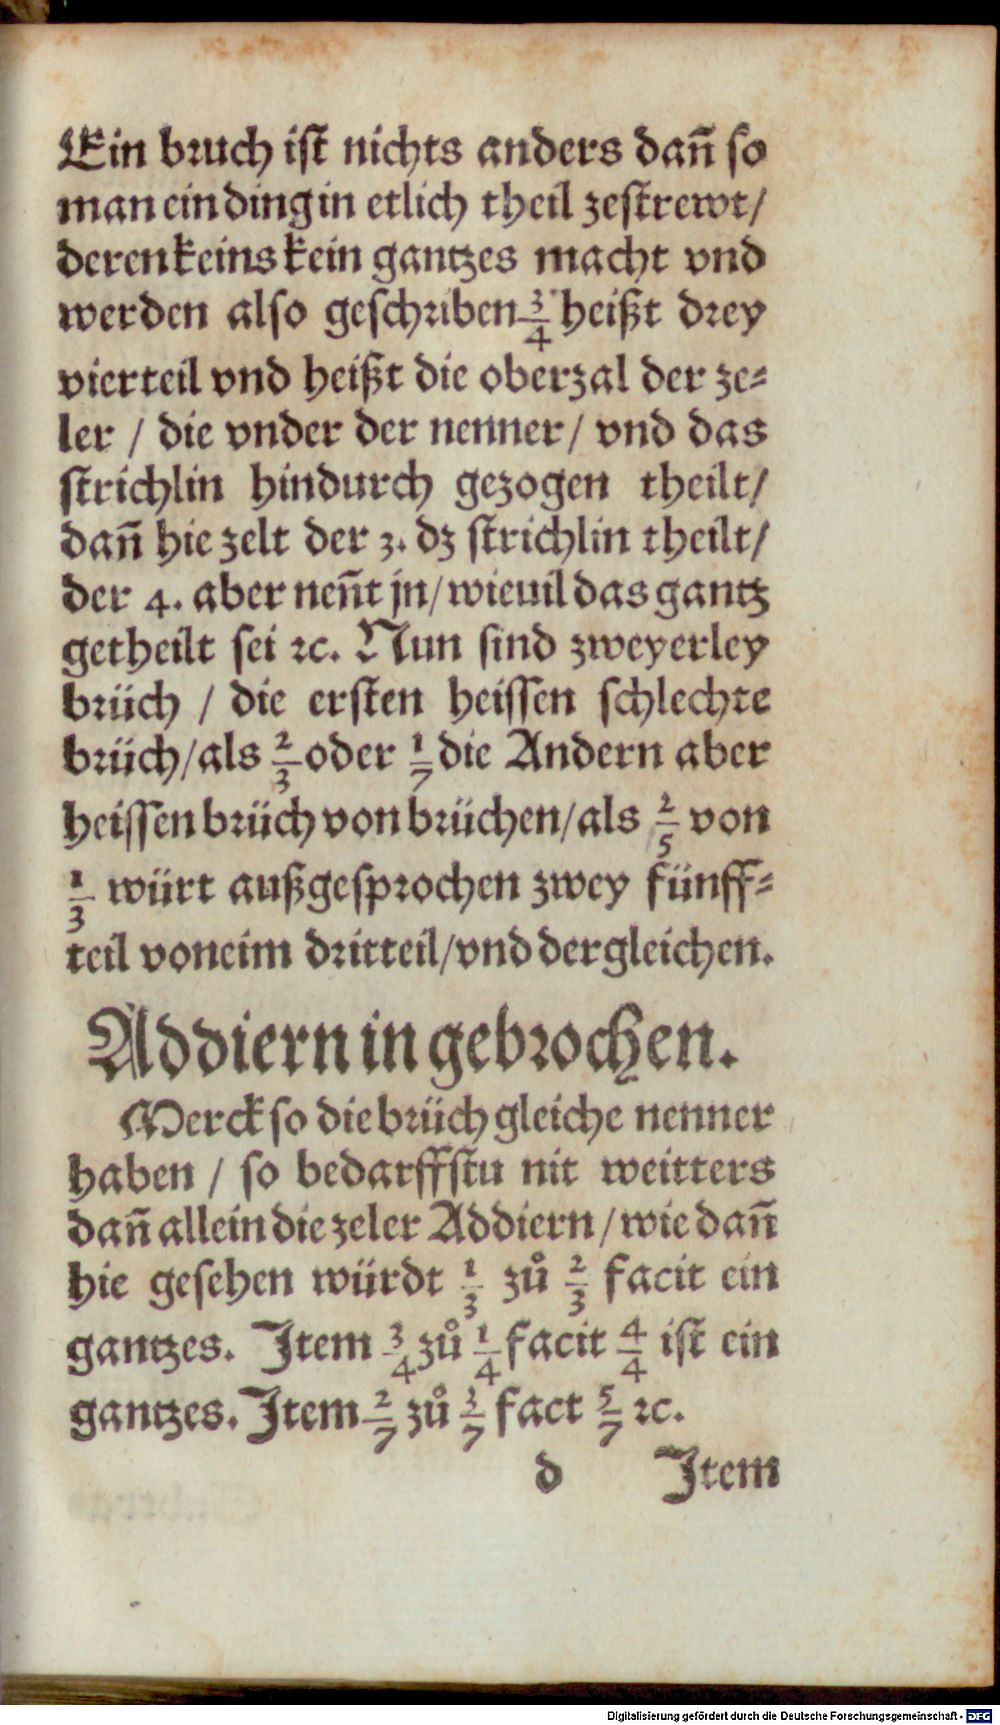 Ein bruch ist nichts anders dañ so
man ein ding in etlich theil zestrewt/
deren keins kein gantzes macht vnd
werden also geschriben ¾ heißt drey
vierteil vnd heißt die oberzal der ze⸗
ler / die vnder der nenner/ vnd das
strichlin hindurch gezogen theilt/
dañ hie zelt der 3. dz strichlin theilt/
der 4. aber neñt jn/wieuil das gantz
getheilt sei ꝛc. Nun sind zweyerley
brüch / die ersten heissen schlechte
brüch/als 2/3 oder 1/7 die Andern aber
heissen brüch von brüchen/als 2/5 von
1/3 würt außgesprochen zwey fünff⸗
teil von eim dritteil/vnd dergleichen.
Addiern in gebrochen.
Merck so die brüch gleiche nenner
haben / so bedarffstu nit weitters
dañ allein die zeler Addiern/wie dañ
hie gesehen würdt 1/3 zů 2/3 facit ein
gantzes. Item 3/4 zů 1/4 facit 4/4 ist ein
gantzes. Item 2/7 zů 3/7 fact 5/7 ꝛc.
d Item
Digitalisierung gefördert durch die Deutsche Forschungsgemeinschaft - DFG